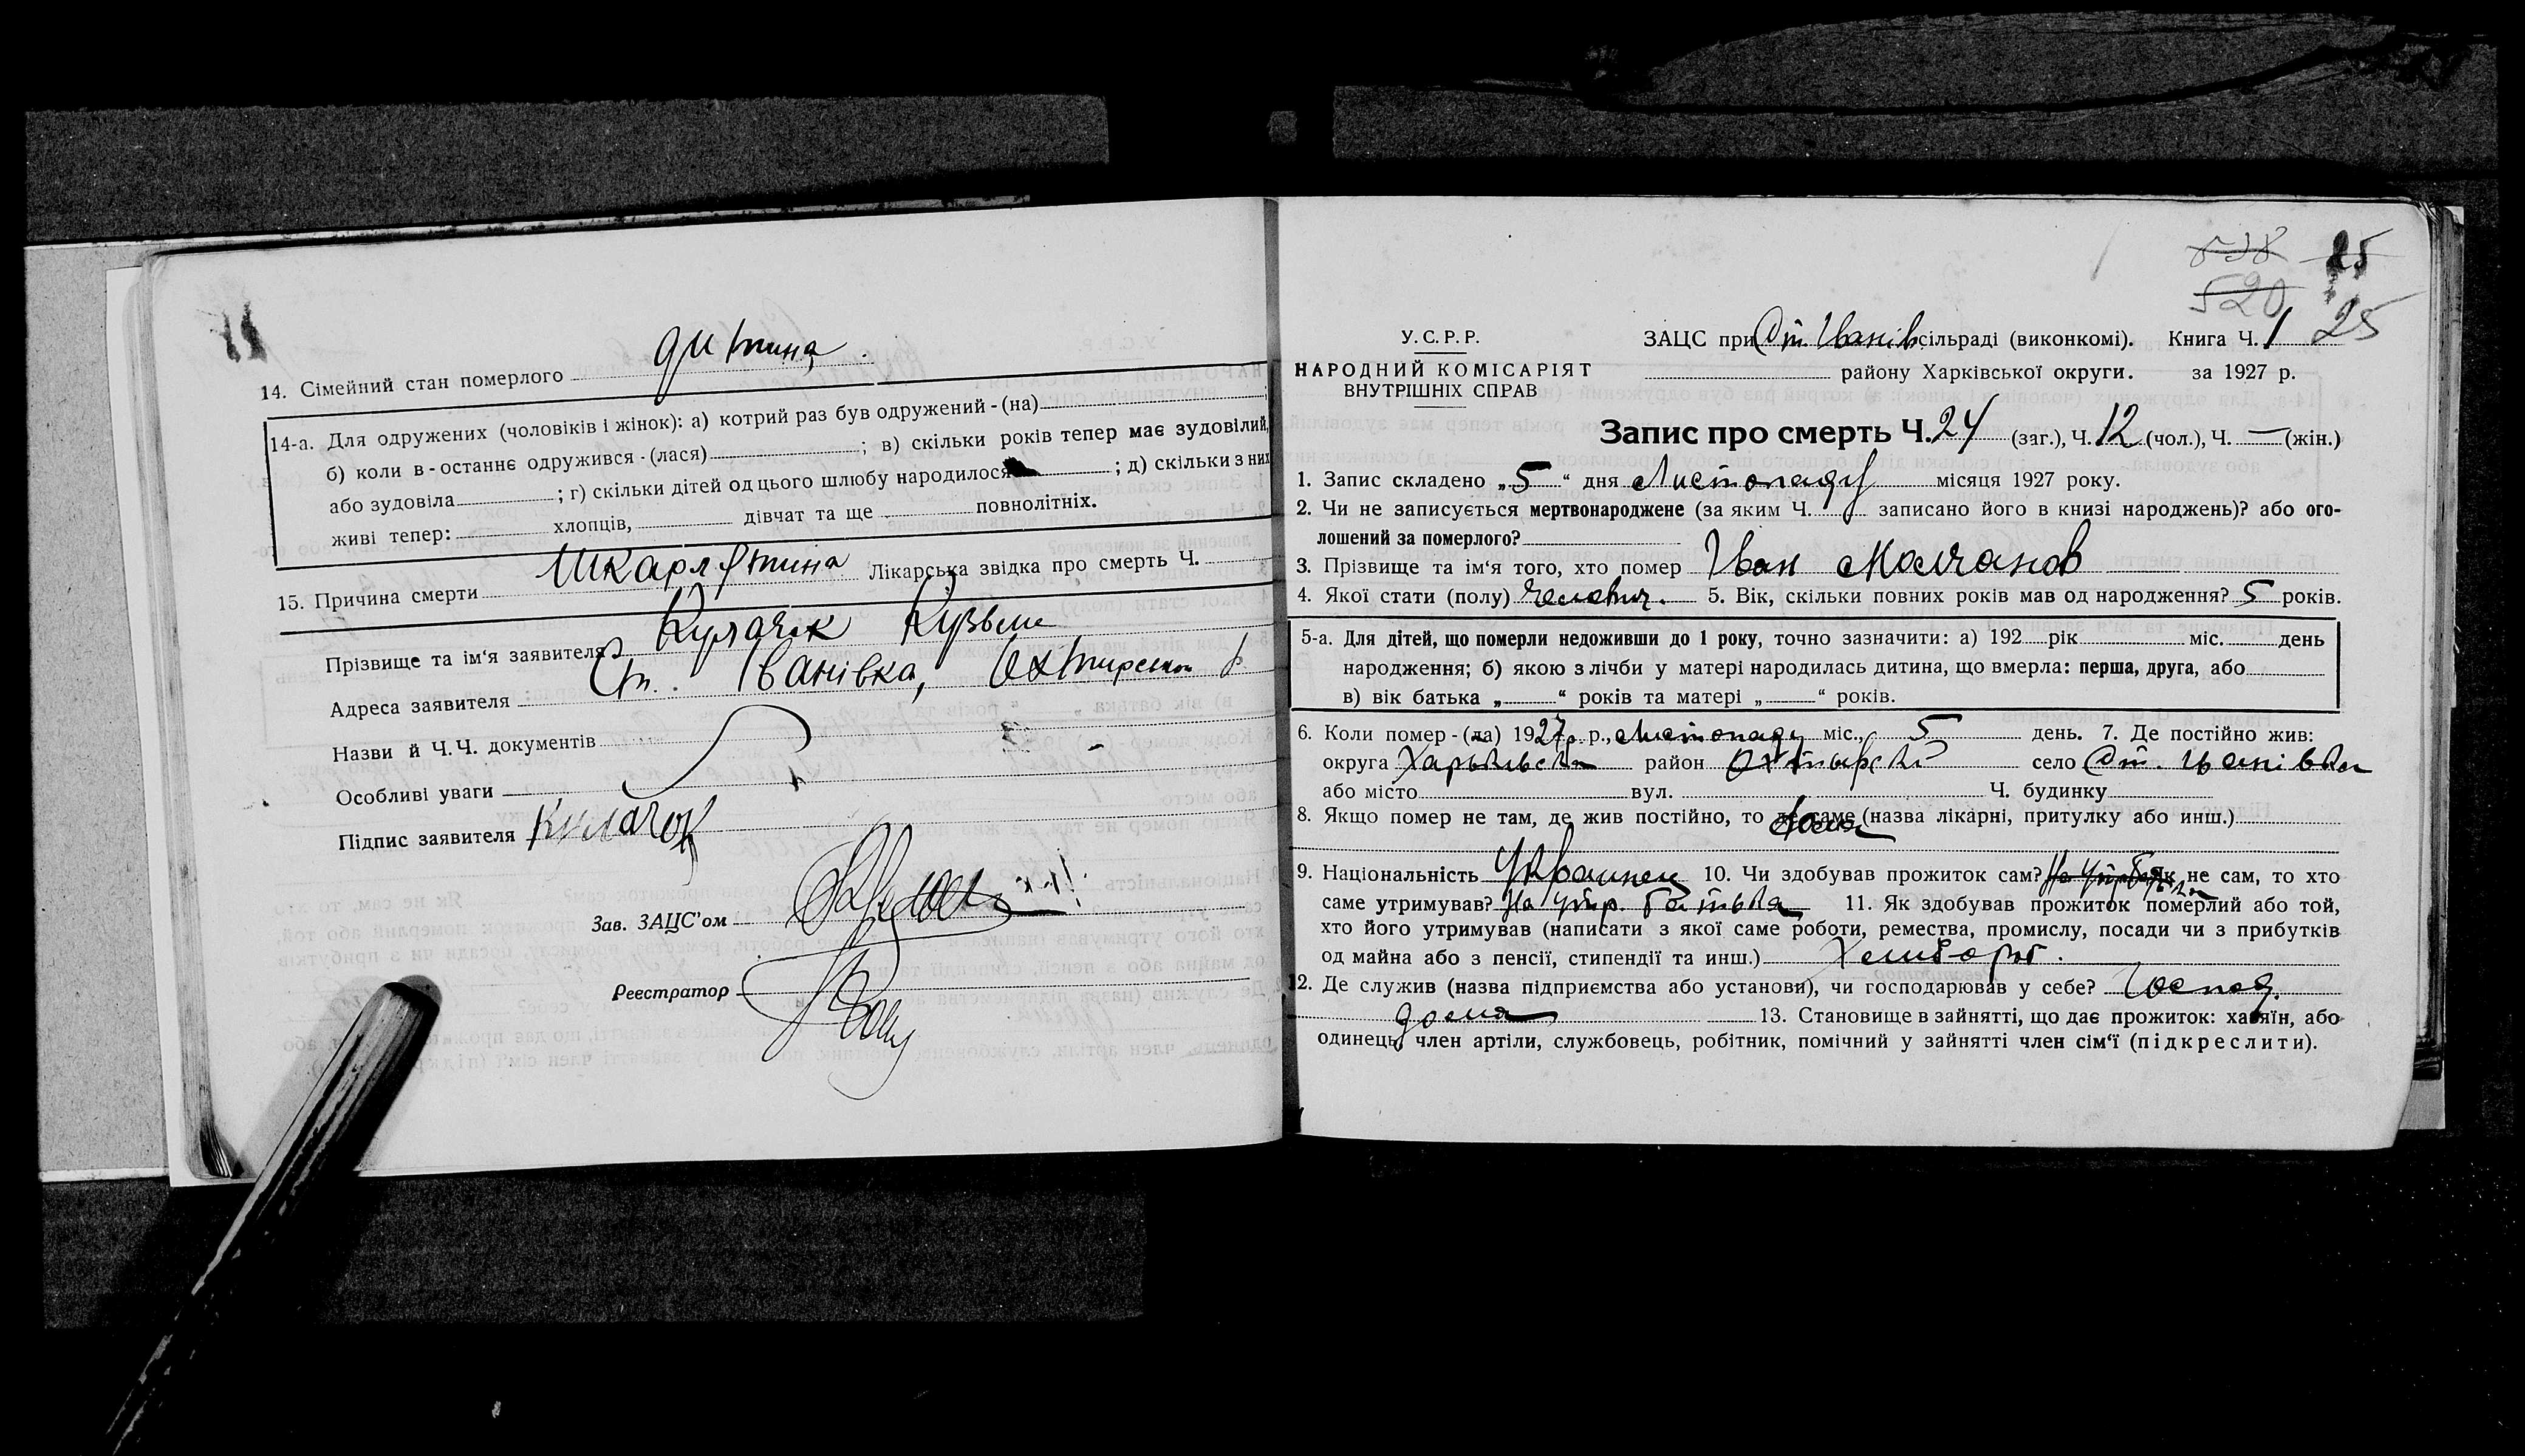 14. Сімейний стан померлого дитина.
14-а. Для одружених (чоловіків і жінок): а) котрий раз був одружений - (на)
б) коли в - останнє одружився - (лася) ; в) скільки років тепер має зудовілий,
або зудовіла ; г) скільки дітей од цього шлюбу народилося ; д) скільки з них
живі тепер: хлопців, дівчат та ще повнолітніх.
15. Причина смерти Шкарлятина Лікарська звідка про смерть Ч.
Прізвище та ім'я заявителя Кулачок Кузьма
Адреса заявителя Ст. Іванівка, Охтирськ
Назви й Ч.Ч. документів
Особливі уваги
Підпис заявителя Кулачок
Зав. ЗАЦС'ом
Реєстратор
538 25
520
25
У.С.Р.Р.
НАРОДНИЙ КОМІСАРІЯТ
ВНУТРІШНІХ СПРАВ
ЗАЦС при Ст Иванів сільраді (виконкомі). Книга Ч. 1
району Харківської округи. за 1927 р.
Запис про смерть Ч. 24 (заг.), Ч. 12 (чол.), Ч. — (жін.)
1. Запис складено „5“ дня Листопаду місяця 1927 року.
2. Чи не записується мертвонароджене (за яким Ч. записано його в книзі народжень)? або ого-
лошений за померлого?
3. Прізвище та ім'я того, хто помер Іван Молчанов
4. Якої стати (полу) Чоловіч. 5. Вік, скільки повних років мав од народження? 5 років.
5-а. Для дітей, що померли недоживши до 1 року, точно зазначити: а) 192 рік міс. день
народження; б) якою з лічби у матері народилась дитина, що вмерла: перша, друга, або
в) вік батька „ “ років та матері „ “ років.
6. Коли помер - (ла) 1927 р., Листопаду міс., 5 день. 7. Де постійно жив:
округа Харьківська район Охтырськ село Ст. Иванівка
або місто вул. Ч. будинку
8. Якщо помер не там, де жив постійно, то де саме (назва лікарні, притулку або инш.)
9. Національність Украинец 10. Чи здобував прожиток сам? Як не сам, то хто
саме утримував? На утр. батька 11. Як здобував прожиток померлий або той,
хто його утримував (написати з якої саме роботи, ремества, промислу, посади чи з прибутків
од майна або з пенсії, стипендії та инш.) Хлибороб.
12. Де служив (назва підприємства або установи), чи господарював у себе? Господ.
дома 13. Становище в зайнятті, що дає прожиток: хазяїн, або
одинець, член артіли, службовець, робітник, помічний у зайнятті член сім'ї (підкреслити).